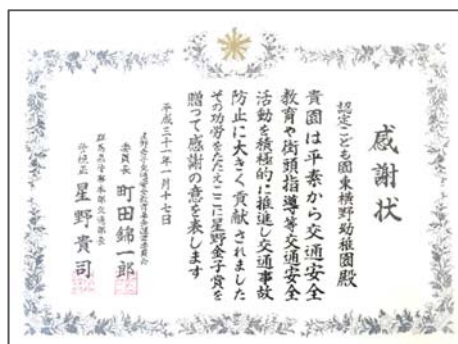 感謝状
認定こども園東横野幼稚園殿
貴園は平素から交通安全
教育や街頭指導等交通安全
活動を積極的に推進し交通事故
防止に大きく貢献されました
その功労をたたえここに星野金子賞を
贈って感謝の意を表します
平成三十一年一月十七日
星野金子交通安全教育基金運営委員会
委員長 町田錦一郎
群馬県警察本部交通部長
警視正 星野貴司